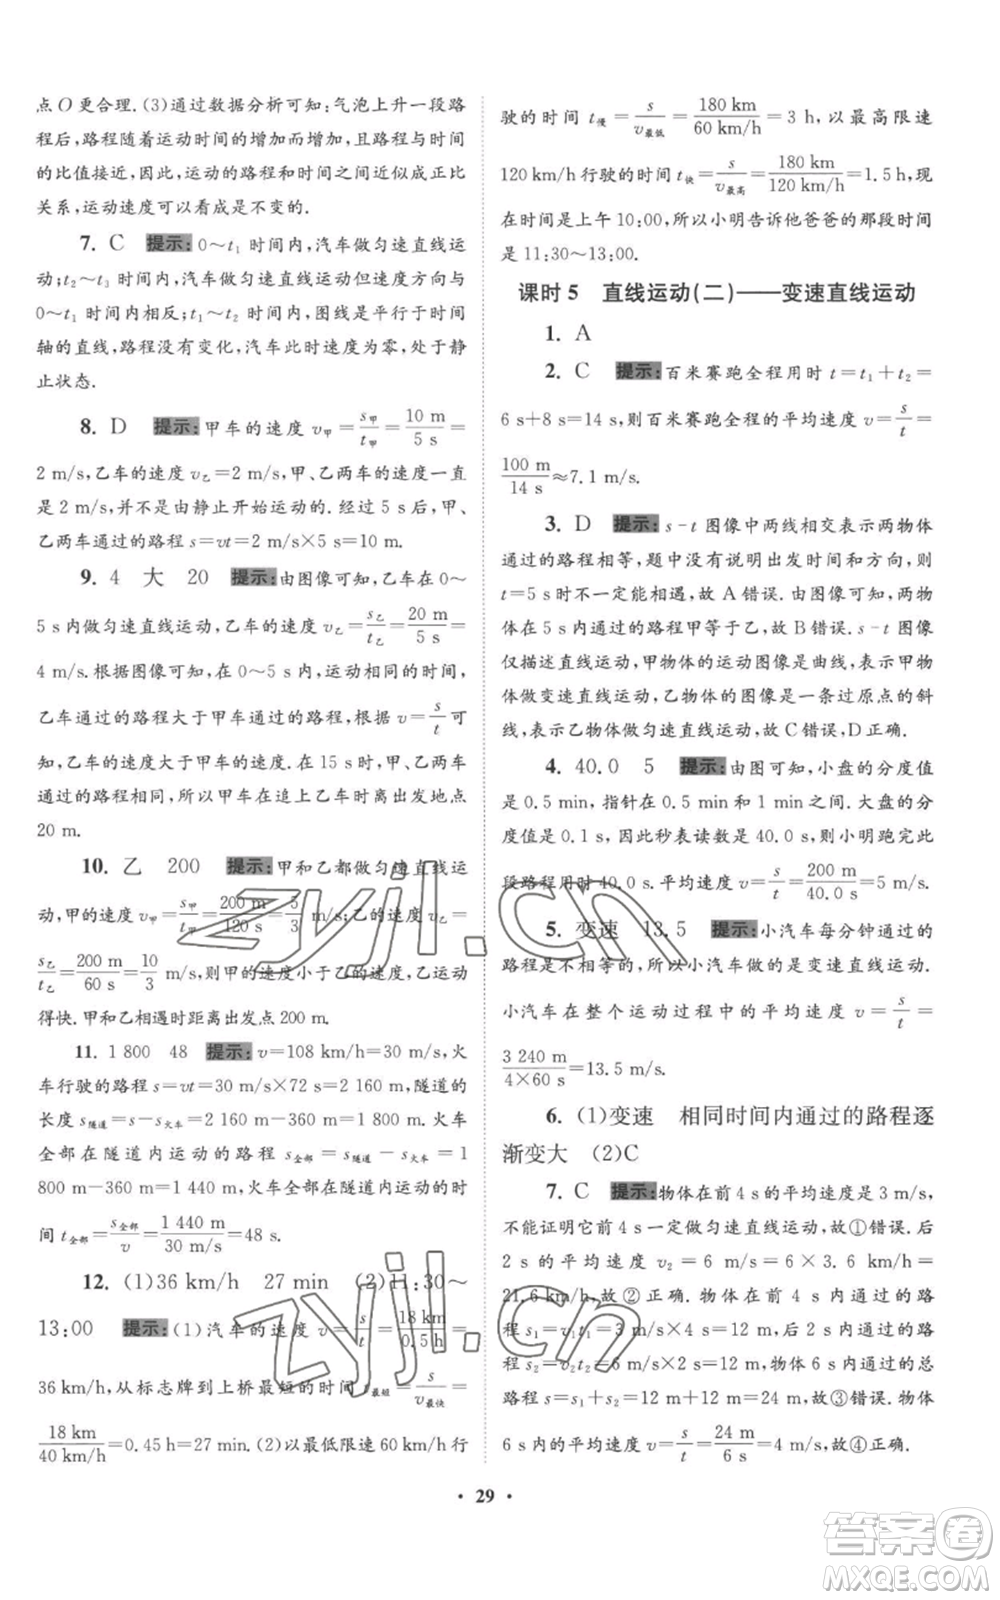 点O更合理.(3)通过数据分析可知:气泡上升一段路
程后,路程随着运动时间的增加而增加,且路程与时间
的比值接近,因此,运动的路程和时间近似成正比
关系,运动速度可以看成是不变的.
7. C 提示:0～t₁ 时间内,汽车做匀速直线运
动;t₂～t₃ 时间内,汽车做匀速直线运动但速度方向与
0～t₁ 时间内相反;t₁～t₂ 时间内,图线是平行于时间
轴的直线,路程没有变化,汽车此时速度为零,处于静
止状态.
8. D 提示:甲车的速度 v甲=s甲/t甲=10 m/5 s=
2 m/s,乙车的速度 v乙=2 m/s,甲、乙两车的速度一直
是 2 m/s,并不是由静止开始运动的.经过 5 s,甲、
乙两车通过的路程 s=vt=2 m/s×5 s=10 m.
9. 4 大 20 提示:由图像可知,乙车在 0～
5 s内做匀速直线运动,乙车的速度 v乙=s乙/t乙=20 m/5 s=
4 m/s.根据图像可知,在 0～5 s内,运动相同的时间,
乙车通过的路程大于甲车通过的路程,根据 v=s/t 可
知,乙车的速度大于甲车的速度.在 15 s时,甲、乙两车
通过的路程相同,所以甲车在追上乙车时离出发地点
20 m.
10. 乙 200 提示:甲和乙都做匀速直线运
动,甲的速度 v甲=s甲/t甲=200 m/120 s=5/3 m/s;乙的速度 v乙=
s乙/t乙=200 m/60 s=10/3 m/s,则甲的速度小于乙的速度,乙运动
得快.甲和乙相遇时距离出发点 200 m.
11. 1 800 48 提示:v=108 km/h=30 m/s,火
车行驶的路程 s=vt=30 m/s×72 s=2 160 m,隧道的
长度 s隧道=s-s火车=2 160 m-360 m=1 800 m.火车
全部在隧道内运动的路程 s全部=s隧道-s火车=1
800 m-360 m=1 440 m,火车全部在隧道内运动的时
间 t全部=s全部/v=1 440 m/30 m/s=48 s.
12. (1)36 km/h 27 min (2)11:30～
13:00 提示:(1)汽车的速度 v=s/t=18 km/0.5 h=
36 km/h,从标志牌到上桥最短的时间 t最短=s/v最快=
18 km/40 km/h=0.45 h=27 min.(2)以最低限速 60 km/h 行
驶的时间 t慢=s/v最低=180 km/60 km/h=3 h,以最高限速
120 km/h行驶的时间 t快=s/v最高=180 km/120 km/h=1.5 h,现
在时间是上午 10:00,所以小明告诉他爸爸的那段时间
是 11:30～13:00.
课时 5 直线运动(二)——变速直线运动
1. A
2. C 提示:百米赛跑全程用时 t=t₁+t₂=
6 s+8 s=14 s,则百米赛跑全程的平均速度 v=s/t=
100 m/14 s≈7.1 m/s.
3. D 提示:s-t图像中两线相交表示两物体
通过的路程相等,题中没有说明出发时间和方向,则
t=5 s时不一定能相遇,故 A错误.由图像可知,两物
体在 5 s内通过的路程甲等于乙,故 B错误.s-t图像
仅描述直线运动,甲物体的运动图像是曲线,表示甲物
体做变速直线运动,乙物体的图像是一条过原点的斜
线,表示乙物体做匀速直线运动,故 C错误,D正确.
4. 40.0 5 提示:由图可知,小盘的分度值
是 0.5 min,指针在 0.5 min和 1 min之间.大盘的分
度值是 0.1 s,因此秒表读数是 40.0 s,所以小明跑完这
段路程用时 40.0 s.平均速度 v=s/t=200 m/40.0 s=5 m/s.
5. 变速 13.5 提示:小汽车每分钟通过的
路程不相等,所以小汽车做的是变速直线运动.
小汽车在整个运动过程中的平均速度 v=s/t=
3 240 m/4×60 s=13.5 m/s.
6. (1)变速 相同时间内通过的路程逐
渐变大 (2)C
7. C 提示:物体在前 4 s的平均速度是 3 m/s,
不能证明它前 4 s一定做匀速直线运动,故①错误.后
2 s 的平均速度 v₂=6 m/s=
21.6 km/h,故②正确.物体在前 4 s内通过的路
程 s₁=v₁t₁=3 m/s×4 s=12 m,后 2 s内通过的路
程 s₂=v₂t₂=6 m/s×2 s=12 m,物体 6 s内通过的总
路程 s=s₁+s₂=12 m+12 m=24 m,故③错误.物体
6 s内的平均速度 v=s/t=24 m/6 s=4 m/s,故④正确.
• 29 •
zyjl.cn
zyjl.cn
答案卷
MXQE.COM